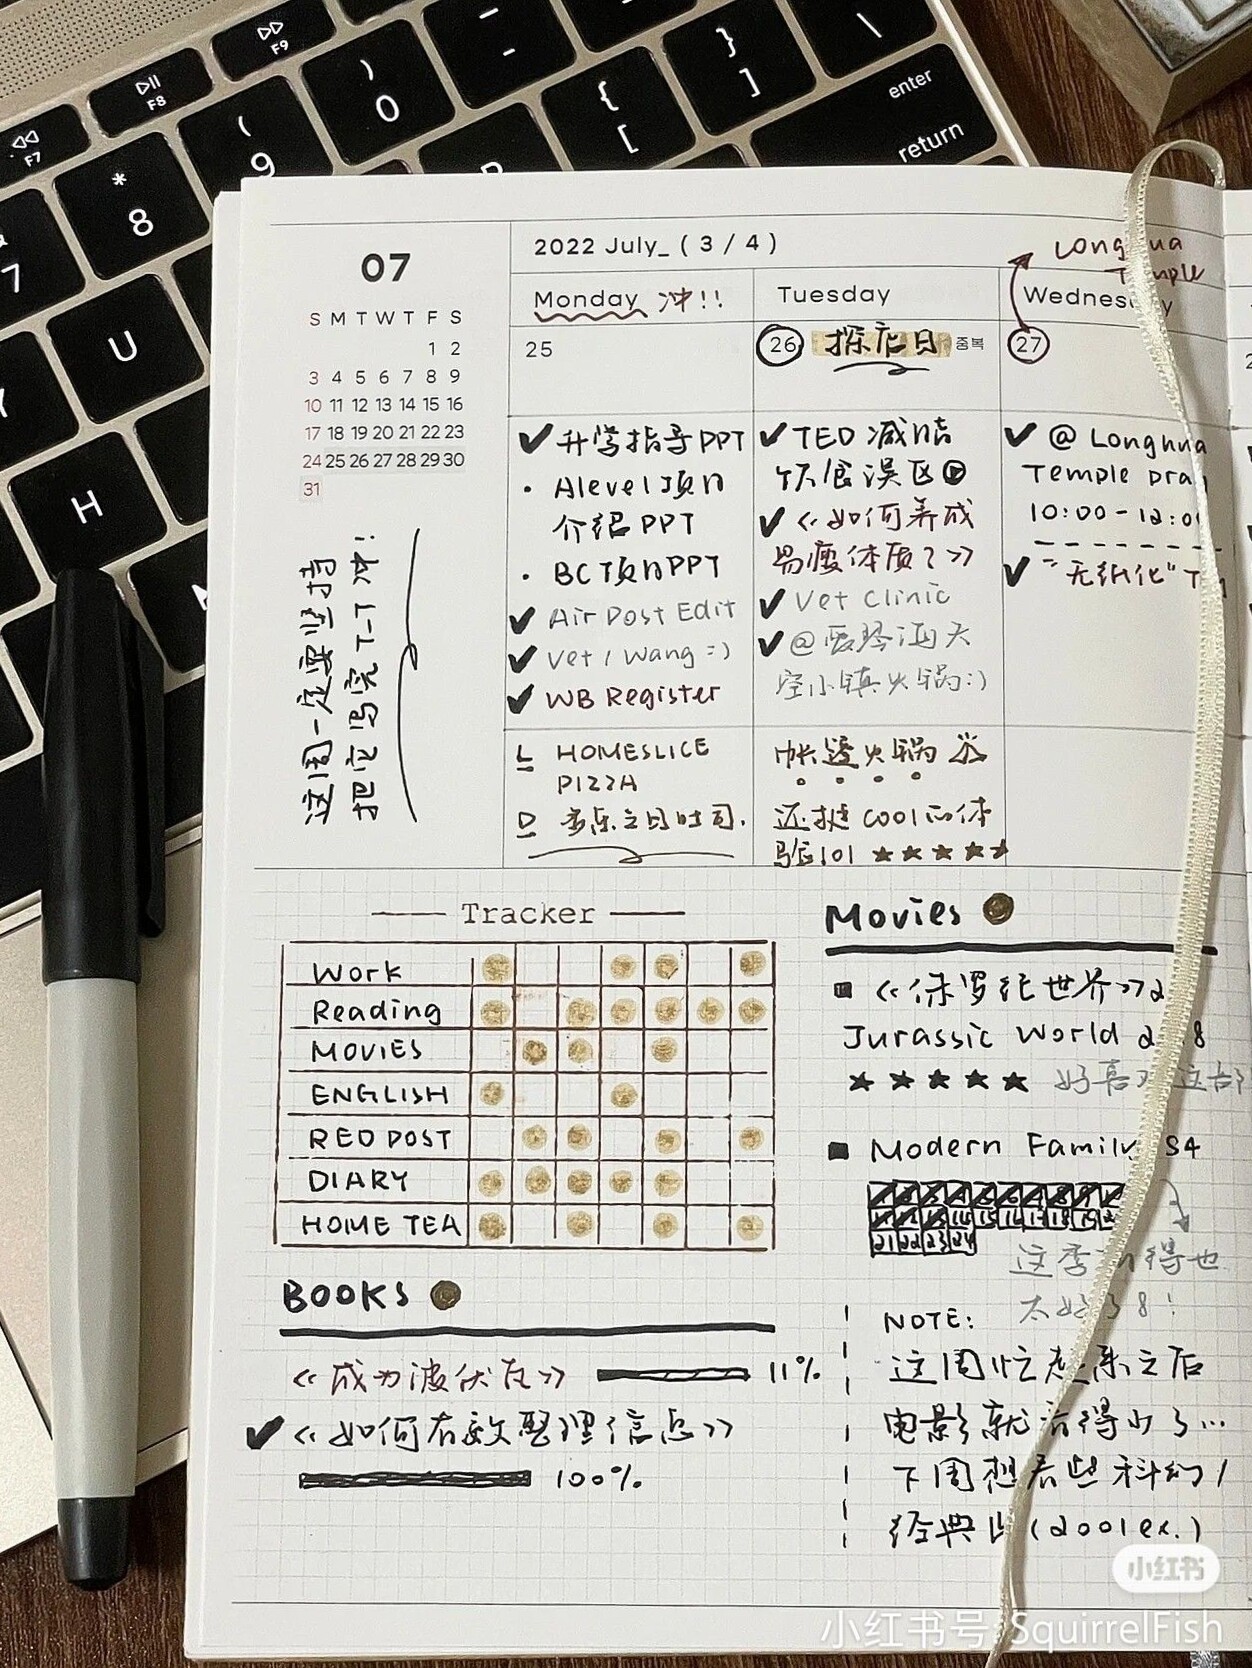 F7
▷II
F8
F9
*
8
(
9
)
0
-
{
[
}
]
\
enter
return
7
U
Y
H
07
S M T W T F S
1 2
3 4 5 6 7 8 9
10 11 12 13 14 15 16
17 18 19 20 21 22 23
24 25 26 27 28 29 30
31
这周一定要坚持
把它写完 T-T 冲!
2022 July_ ( 3 / 4 )
Longhua
Temple
Monday 冲!!
25
✔ 升学指导PPT
· Alevel项目
介绍 PPT
· BC项目PPT
✔ Air Post Edit
✔ Vet / Wang :)
✔ WB Register
L HOMESLICE
PIZZA
D 音乐之日时司.
Tuesday
26 探店日 중복
✔ TED 减脂
饮食误区
✔ 《如何养成
易瘦体质?》
✔ Vet Clinic
✔ @ 天
空小镇火锅:)
帐篷火锅
还挺 cool的体
验lol ★★★★★
Wednesday
27
✔ @ Longhua
Temple
10:00 - 12:00
✔ "无纸化"
Tracker
Work
Reading
MOVIES
ENGLISH
RED POST
DIARY
HOME TEA
BOOKS
《成为波伏瓦》 11%
✔ 《如何有效整理信息》
100%
Movies
■ 《侏罗纪世界》2
Jurassic World
★★★★★ 好喜欢这部
■ Modern Family S4
14 15 16 17 18 19
21 22 23 24
这季 得也
太好了8!
NOTE:
这周忙起来之后
电影就看得少了...
下周想看些科幻/
经典片(2001 ex.)
小红书
小红书号: SquirrelFish